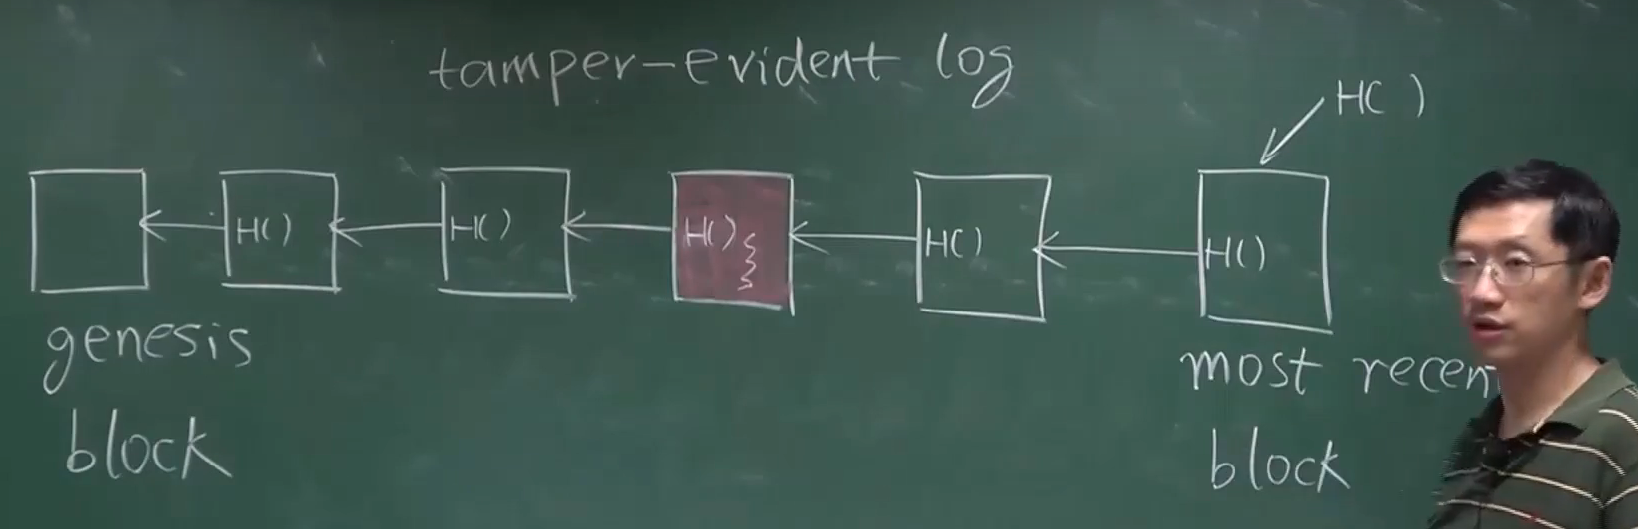 tamper-evident log
H( )
H()
H()
H()
H()
H()
genesis
block
most recen
block